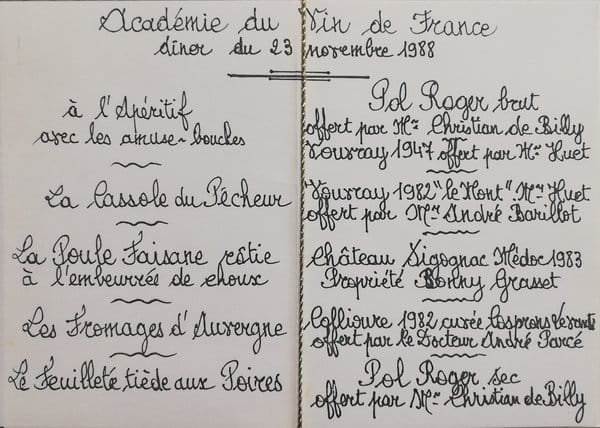 Académie du Vin de France
dîner du 23 novembre 1988
à l'Apéritif
avec les amuse-bouches
La Cassole du Pêcheur
La Poule Faisane rôtie
à l'embeurrée de choux
Les Fromages d'Auvergne
Le Feuilleté tiède aux Poires
Pol Roger brut
offert par Mr Christian de Billy
Vouvray 1947 offert par Mr Huet
Vouvray 1982 "le Mont" Mr Huet
offert par Mr André Barillot
Château Sigognac Médoc 1983
Propriété Bonny Grasset
Collioure 1982 cuvée Cosprons Levants
offert par le Docteur André Parcé
Pol Roger sec
offert par Mr Christian de Billy